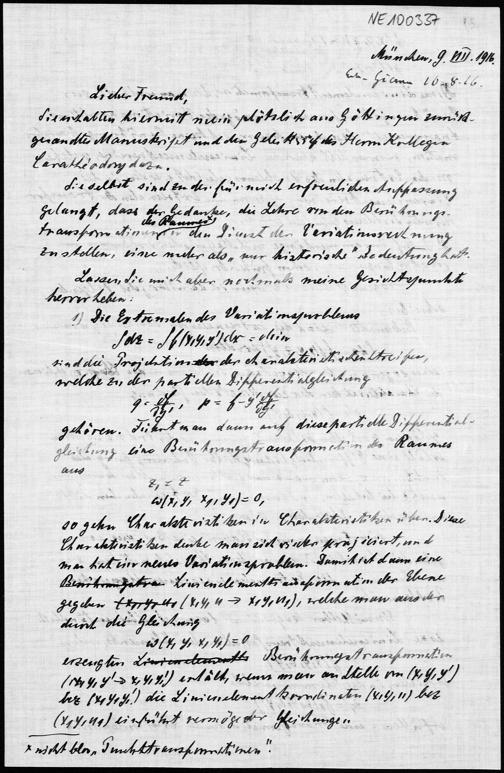 NE100337
München, 9. VIII. 1916.
16-8-16
Lieber Freund,
Sie erhalten hiermit mein plötzlich aus Göttingen zurück-
gesandte Manuskript und den Geleitbrief des Herrn Kollegen
Carathéodory dazu.
Sie selbst sind zu der für mich erfreulichen Auffassung
gelangt, dass der Gedanke, die Lehre von den Berührungs-
des Raumes×
transformationen in den Dienst der Variationsrechnung
zu stellen, eine mehr als „nur historische" Bedeutung hat.
Lassen Sie mich aber nochmals meine Gesichtspunkte
hervorheben:
1) Die Extremalen des Variationsproblems
∫dz = ∫f(x,y,y')dx = min
sind die Projektion der charakteristischen Streifen,
welche zu der partiellen Differentialgleichung
q = ∂f/∂y', p = f - y' ∂f/∂y'
gehören. Führt man dann auf diese partielle Differential-
gleichung eine Berührungstransformation des Raumes
aus
z₁ = z
ω(x,y, x₁,y₁) = 0,
so gehn Charakteristiken in Charakteristiken über. Diese
Charakteristiken denke man sich wieder projiciert, und
man hat ein neues Variationsproblem. Damit ist dann eine
Linienelementtransformation der Ebene
gegeben (x,y,u → x₁,y₁,u₁), welche man aus der
durch die Gleichung
ω(x,y, x₁,y₁) = 0
erzeugten Berührungstransformation
(x,y,y' → x₁,y₁,y₁') erhält, wenn man an Stelle von (x,y,y')
bez (x₁,y₁,y₁') die Linienelementkoordinaten (x,y,u) bez
(x₁,y₁,u₁) einführt vermöge der Gleichungen
× nicht blos „Punkttransformationen".